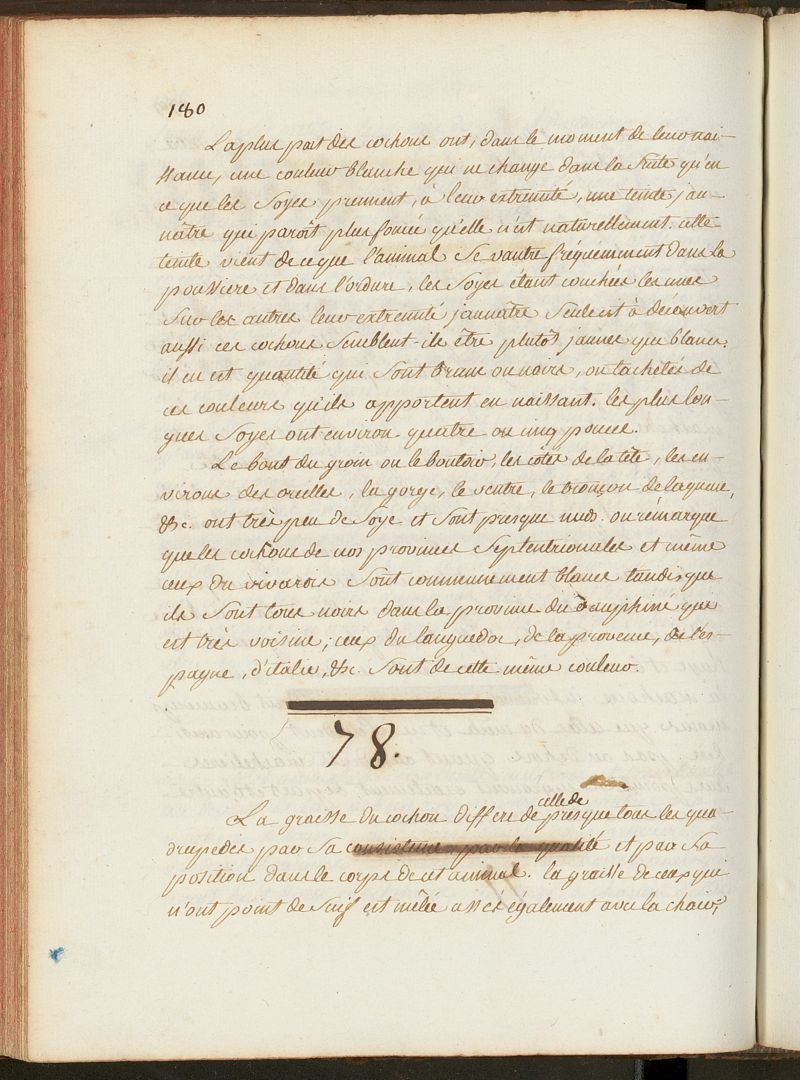 180
La plus part des cochons ont, dans le moment de leur nai-
ssance, une couleur blanche qui ne change dans la suite qu'en
ce que les Soyes prennent, à leur extremité, une teinte jau-
nâtre qui paroît plus foncée qu'elle n'est naturellement. cette
teinte vient de ce que l'animal Se vautre fréquemment dans la
poussiere et dans l'ordure, les Soyes étant couchées les unes
Sur les autres leur extremité jaunâtre Seule est à découvert
aussi ces cochons Semblent-ils être plutôt jaunes que blancs.
il en est quantité qui Sont bruns ou noirs, ou tachetés de
ces couleurs qu'ils apportent en naissant. les plus lon-
gues Soyes ont environ quatre ou cinq pouces.
Le bout du groin ou le boutoir, les côtés de la tête, les en-
virons des oreilles, la gorge, le ventre, le tronçon de la queue,
&c. ont très peu de Soye et Sont presque nuds. on rémarque
que les cochons de nos provinces Septentrionales et même
ceux du vivarois Sont communement blancs tandis que
ils Sont tous noirs dans la province du dauphiné que
est très voisine; ceux du languedoc, de la provence, de l'es-
pagne, d'italie, &c. Sont de cette même couleur.
78.
celle de
La graisse du cochon differe de presque tous les qua-
drupedes par Sa consistence, par la qualité et par Sa
position dans le corps de cet animal. la graisse de ceux qui
n'ont point de Suif est mêlée assez également avec la chair,